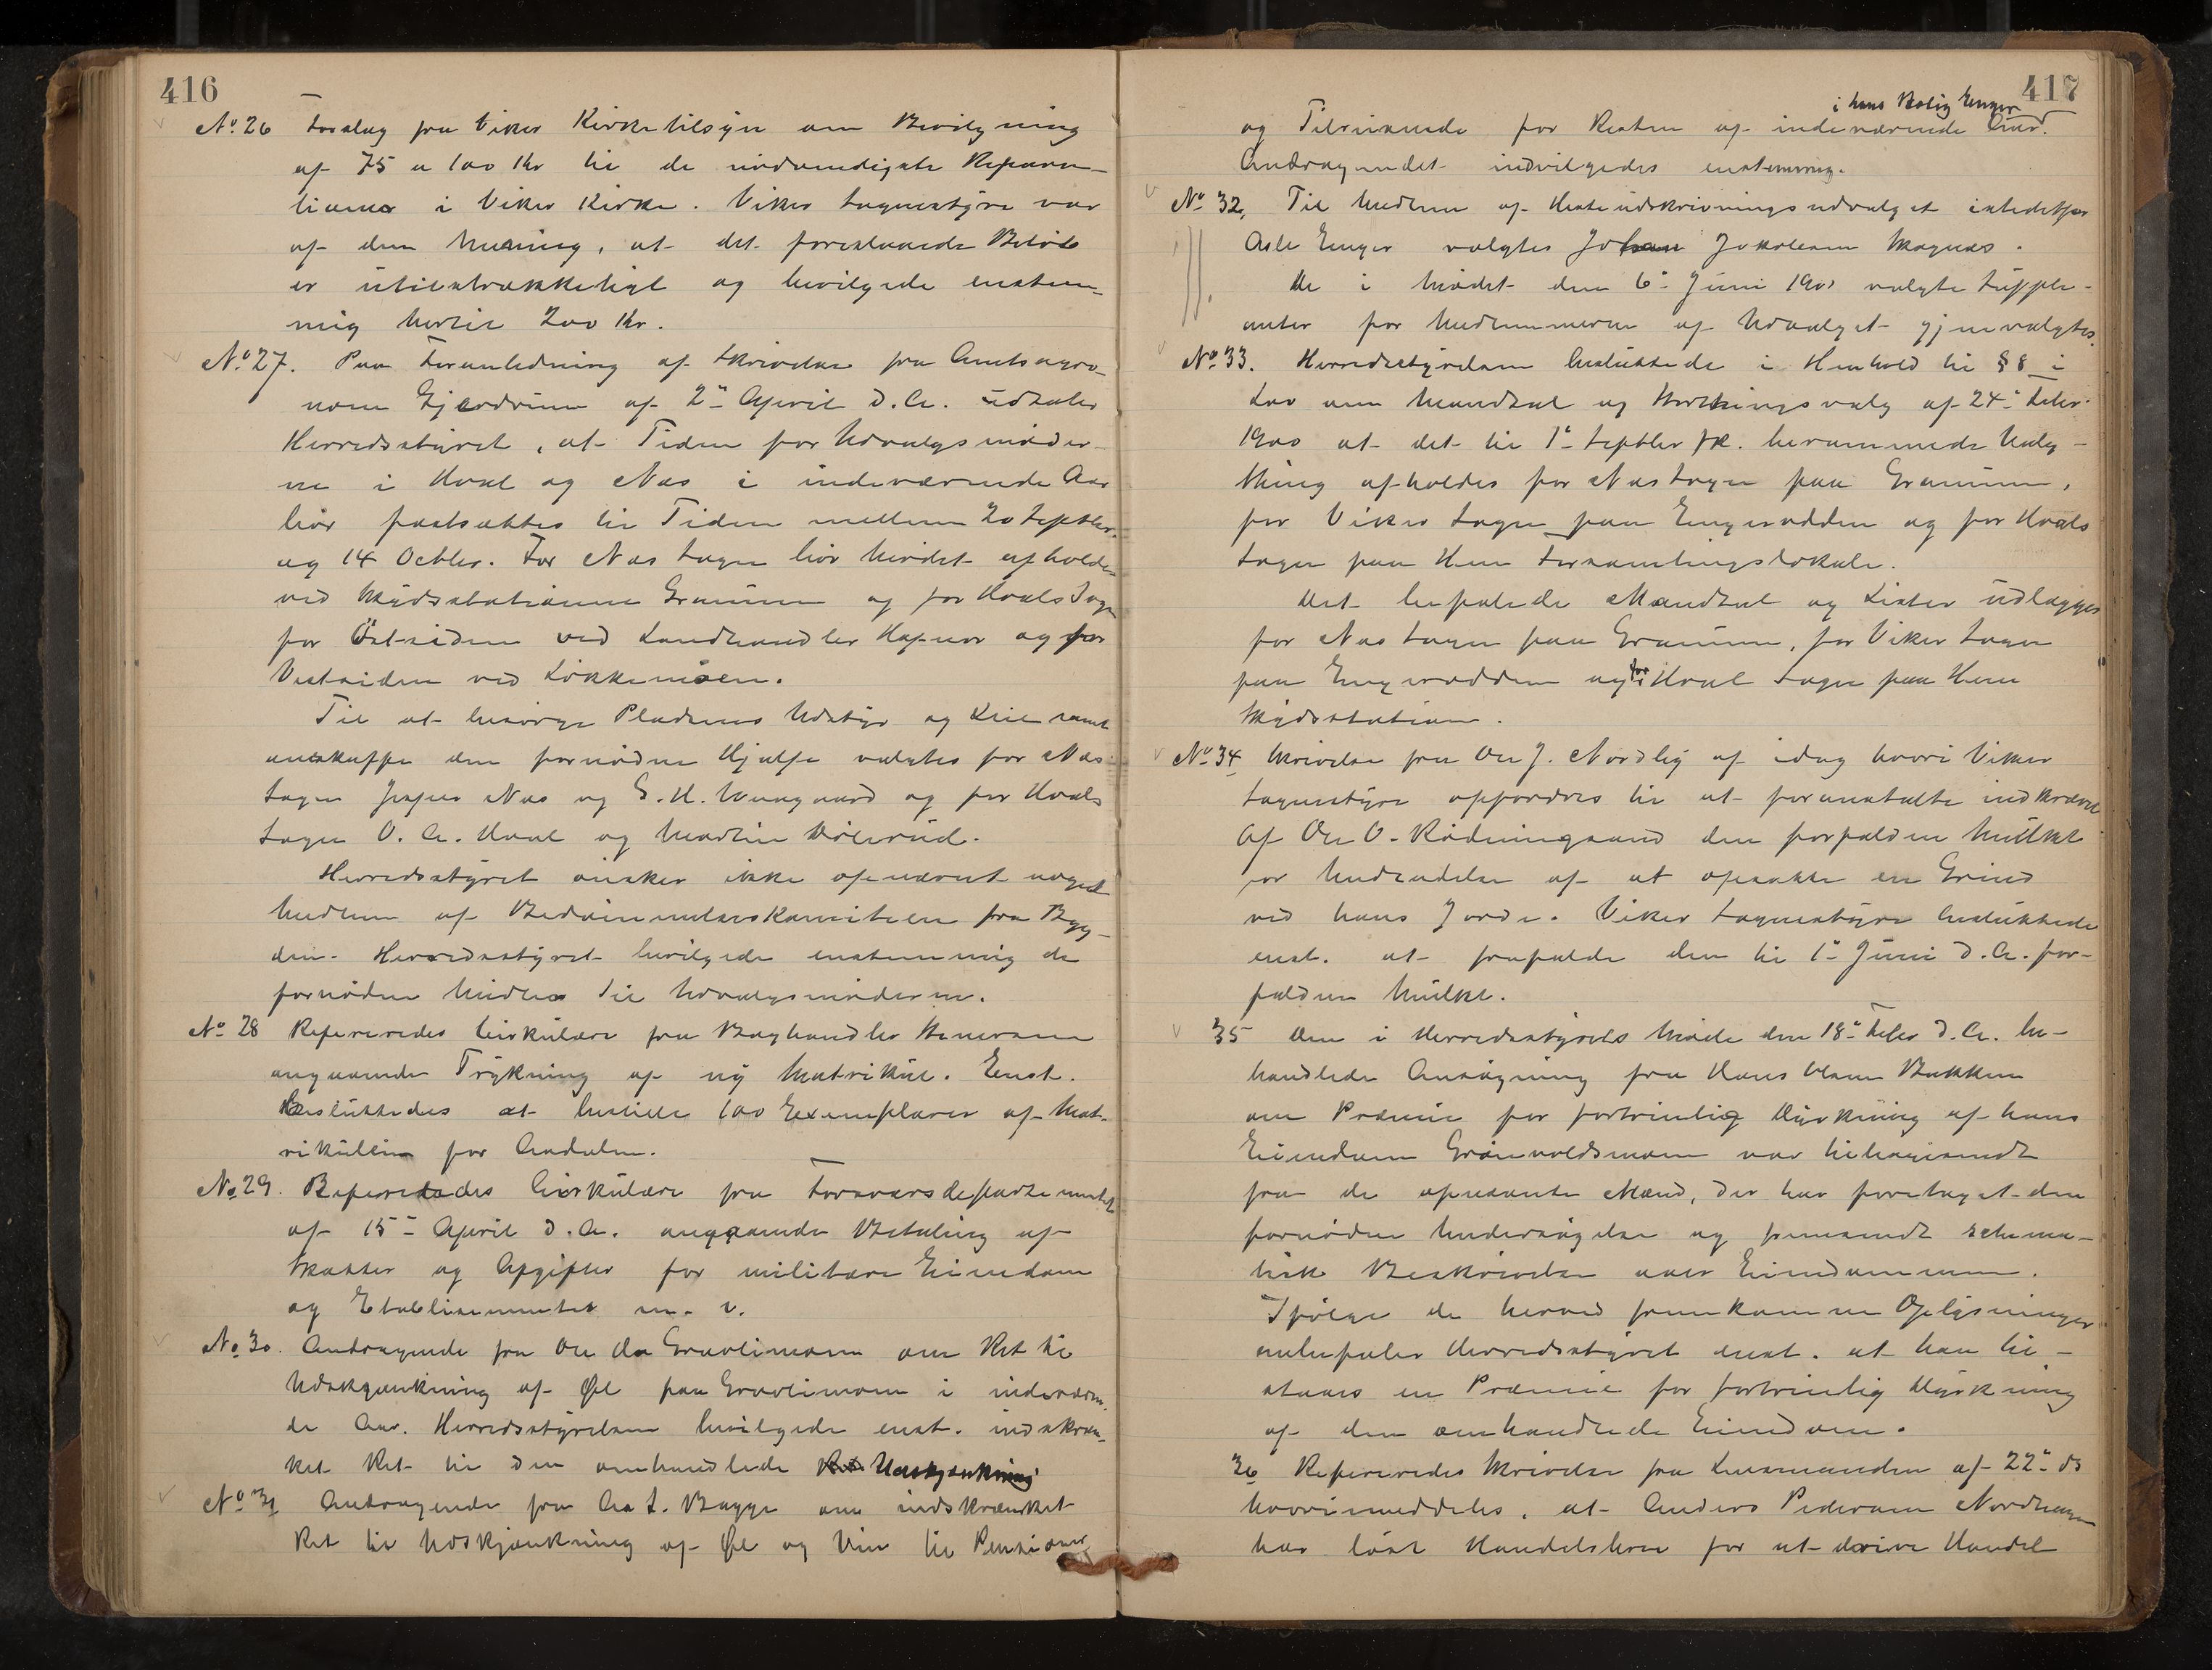 416
No. 26 Forslag fra Viker Kirketilsyn om Bevilgning
af 75 a 100 Kr til de nødvendigste Repara-
tioner i Viker Kirke. Viker Sognestyre var
af den Mening, at det foreslaaede Beløb
er utilstrækkeligt og bevilgede enstem-
mig hertil 200 Kr.
No. 27. Paa Foranledning af Skrivelse fra Amtsagro-
nom Gjerdrum af 2. April d. A. udtaler
Herredsstyret, at Tiden for Udvalgsmøder-
ne i Hval og Næs i indeværende Aar
bør fastsættes til Tiden mellem 20 Septbr.
og 14 Octbr. For Næs Sogn bør Mødet afholdes
ved Skydsstationen Granum og for Hvals Sogn
for Østsiden ved Landhandler Hafnor og for
Vestsiden ved Løkkemoen.
Til at besørge Pladsens Udstyr og Leie samt
anskaffe den fornødne Hjælp valgtes for Næs
Sogn Jesper Næs og og for Hvals
Sogn O. A. Hval og Martin
Herredsstyret ønsker ikke opnævnt noget
Medlem af Bedømmelseskomiteen fra Byg-
den. Herredsstyret bevilgede enstemmig de
fornødne Midler til Udvalgsmøderne.
No. 28 Refereredes Cirkulære fra Boghandler
angaaende Trykning af ny Matrikul. Enst.
Besluttedes at bestille 100 Exemplarer af Mat-
rikullen for Aadalen.
No. 29. Refereredes Cirkulære fra Forsvarsdepartementet
af 15. April d. A. angaaende Betaling af
Skatter og Afgifter for militære Eiendom
og Etablisementer m. v.
No. 30. Andragende fra Ole Gravlimoen om Ret til
Udskjænkning af Øl paa Gravlimoen i indeværen-
de Aar. Herredsstyrelsen bevilgede enst. indskræn-
ket Ret til den omhandlede Udskjænkning
No. 31 Andragende fra Bagge om indskrænket
Ret til Udskjænkning af Øl og Vin til Pensionær
417
i hans Bolig Enger
og Tilreisende for Resten af indeværende Aar.
Andragendet indvilgedes enstemmig.
No. 32, Til Medlem af Hesteudskrivningsudvalget istedetfor
Asle Enger valgtes Johan Jakobsen Skagnæs.
De i Mødet den 6. Juni 1901 valgte Supple-
anter for Medlemmerne af Udvalget gjenvalgtes.
No. 33. Herredsstyrelsen besluttede i Henhold til § 8 i
Lov om Mandtal og Storthingsvalg af 24. Febr.
1900 at det til 1. Septbr berammede Valg-
thing afholdes for Næs Sogn paa Granum,
for Viker Sogn paa Engerodden og for Hvals
Sogn paa Hen Forsamlingslokale.
Det befalede Mandtal og Lister udlægges
for Næs Sogn paa Granum, for Viker Sogn
paa Engerodden og for Hval Sogn paa Hen
Skydsstation.
No. 34 Skrivelse fra Ole J. Nordby af idag hvori Viker
Sognestyre opfordres til at foranstalte indkrævet
af Ole O. Rødningsand den forfaldne Mulkt
for Undladelse af at opsætte en Grind
ved hans Jorde. Viker Sognestyre besluttede
enst. at frafalde den til 1. Juni d. A. for-
faldne Mulkt.
35 Den i Herredsstyrets Møde den 18. Febr d. A. be-
handlede Ansøgning fra Hans Olsen Bakken
om Præmie for fortrinlig Dyrkning af hans
Eiendom Grønvoldsmoen var tilbagesendt
fra de opnævnte Mænd, der har foretaget den
fornødne Undersøgelse og fremsendt schema-
tisk Beskrivelse over Eiendommen.
Ifølge de herved fremkomne Oplysninger
anbefaler Herredsstyret enst. at han til-
staaes en Præmie for fortrinlig Dyrkning
af den omhandlede Eiendom.
36 Refereredes Skrivelse fra Lensmanden af 22. ds
hvori meddeles, at Anders Pedersen Nordhagen
har løst Handelsbrev for at drive Handel